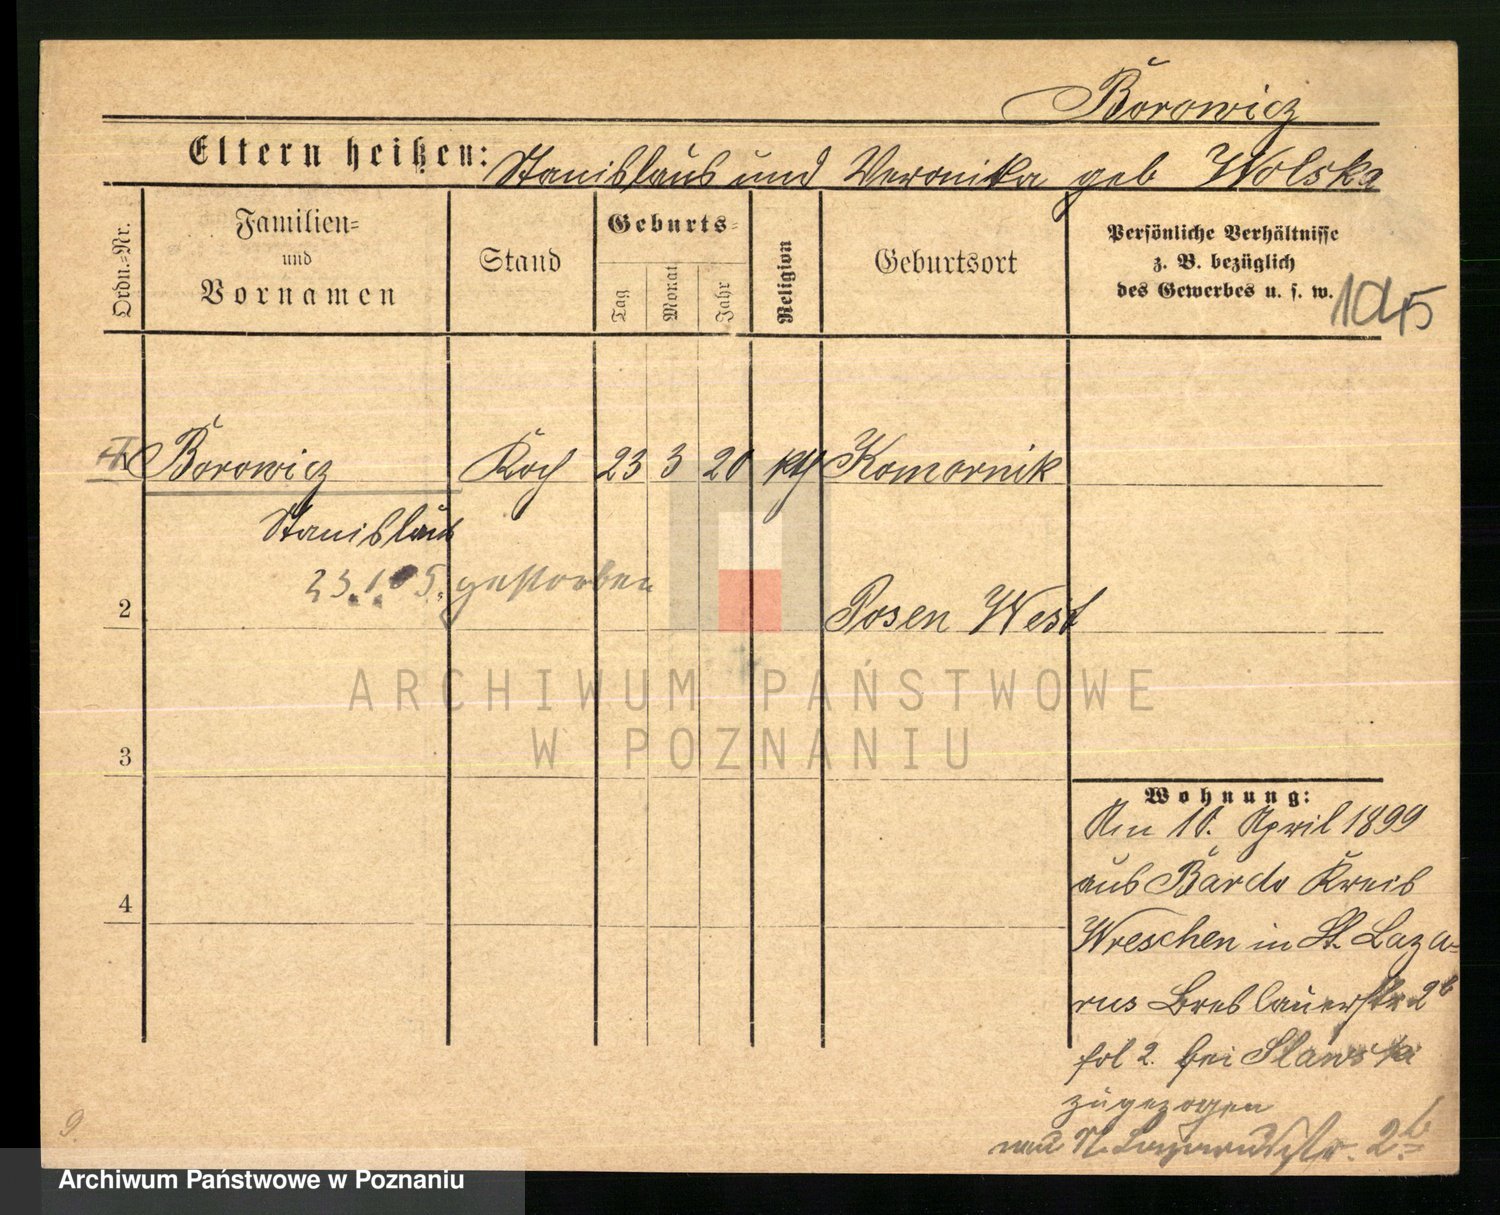 Borowicz
Eltern heißen: Stanislaus und Veronika geb Wolska
Ordn.=Nr.
Familien=
und
Vornamen
Stand
Geburts=
Tag
Monat
Jahr
Religion
Geburtsort
Persönliche Verhältnisse
z. B. bezüglich
des Gewerbes u. s. w.
1045
Borowicz Koch 23 3 20 kth Komornik
Stanislaus
23.1.05. gestorben
2
Posen West
ARCHIWUM PAŃSTWOWE
W POZNANIU
3
Wohnung:
Am 10. April 1899
aus Bardo Kreis
4
Wreschen in St. Laza=
rus Breslauerstr 2b
fol 2. bei Slawska
zugezogen
St. Lazarusstr. 2b
9
Archiwum Państwowe w Poznaniu